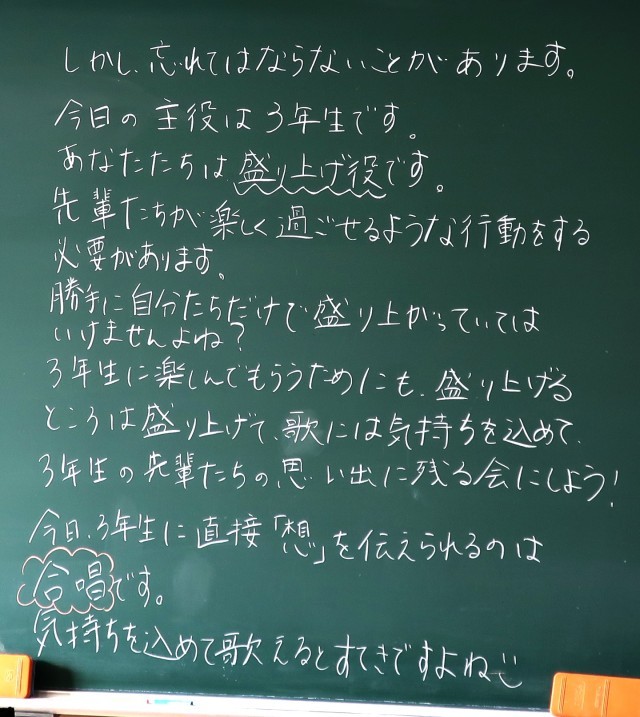 しかし、忘れてはならないことがあります。
今日の主役は3年生です。
あなたたちは盛り上げ役です。
先輩たちが楽しく過ごせるような行動をする
必要があります。
勝手に自分たちだけで盛り上がっていては
いけませんよね?
3年生に楽しんでもらうためにも、盛り上げる
ところは盛り上げて、歌には気持ちを込めて、
3年生の先輩たちの思い出に残る会にしよう!
今日、3年生に直接「想」を伝えられるのは
合唱です。
気持ちを込めて歌えるとすてきですよね